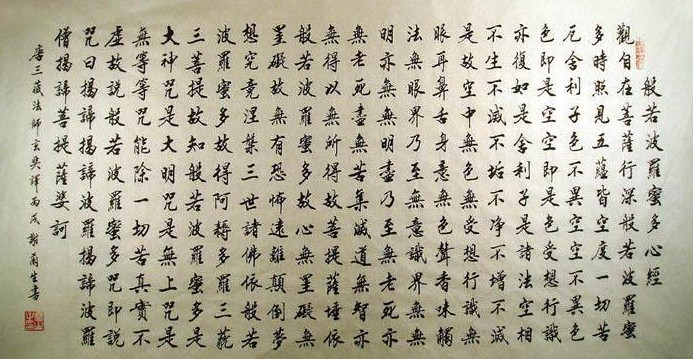 般若波羅蜜多心經
觀自在菩薩行深般若波羅蜜
多時照見五蘊皆空度一切苦
厄舍利子色不異空空不異色
色即是空空即是色受想行識
亦復如是舍利子是諸法空相
不生不滅不垢不净不增不減
是故空中無色無受想行識無
眼耳鼻舌身意無色聲香味觸
法無眼界乃至無意識界無無
明亦無無明盡乃至無老死亦
無老死盡無苦集滅道無智亦
無得以無所得故菩提薩埵依
般若波羅蜜多故心無罣礙無
罣礙故無有恐怖遠離顛倒夢
想究竟涅槃三世諸佛依般若
波羅蜜多故得阿耨多羅三藐
三菩提故知般若波羅蜜多是
大神咒是大明咒是無上咒是
無等等咒能除一切苦真實不
虛故說般若波羅蜜多咒即說
咒曰揭諦揭諦波羅揭諦波羅
僧揭諦菩提薩婆訶
唐三藏法師玄奘譯丙戌